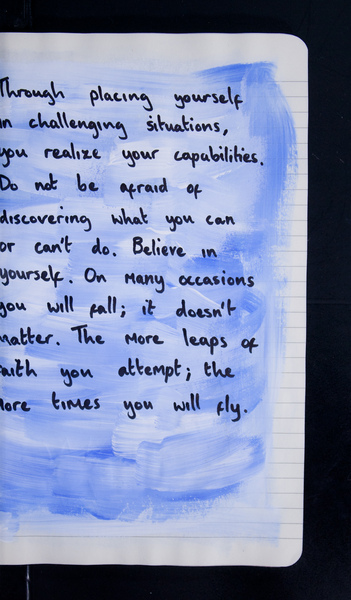 Through placing yourself
in challenging situations,
you realize your capabilities.
Do not be afraid of
discovering what you can
or can't do. Believe in
yourself. On many occasions
you will fall; it doesn't
matter. The more leaps of
faith you attempt; the
more times you will fly.